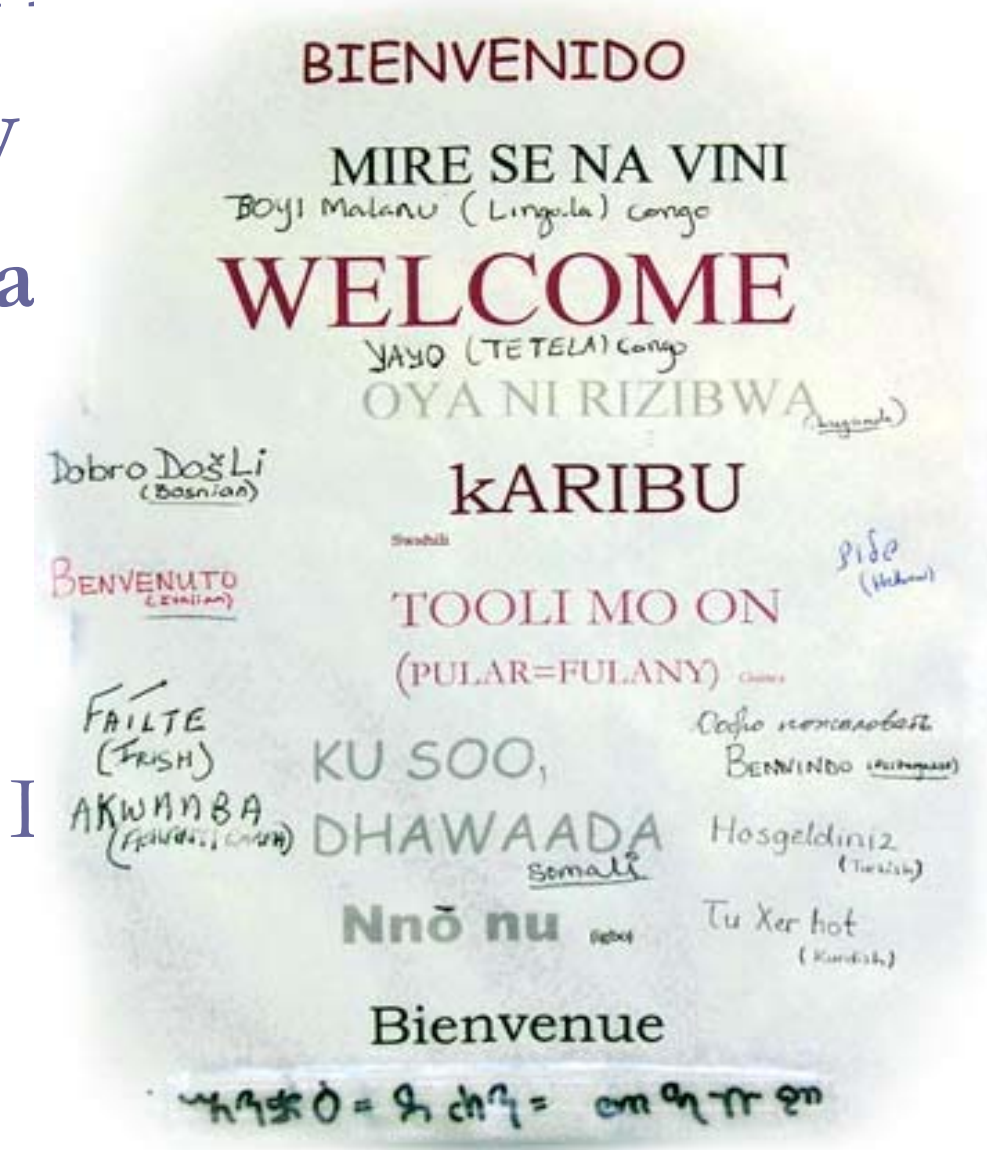 y
a
I
BIENVENIDO
MIRE SE NA VINI
BOYI Malanu (Lingala) congo
WELCOME
YAYO (TETELA) Congo
OYA NI RIZIBWA
(Luganda)
Dobro Došli
(Bosnian)
kARIBU
Swahili
BENVENUTO
(Italian)
(Hebrew)
TOOLI MO ON
(PULAR=FULANY) Guinea
FÁILTE
(IRISH)
Добро пожаловать
KU SOO,
BENVINDO (Portuguese)
AKWAABA
DHAWAADA
Hosgeldiniz
(Turkish)
Somali
Nnō nu (Igbo)
Tu Xer hot
(Kurdish)
Bienvenue